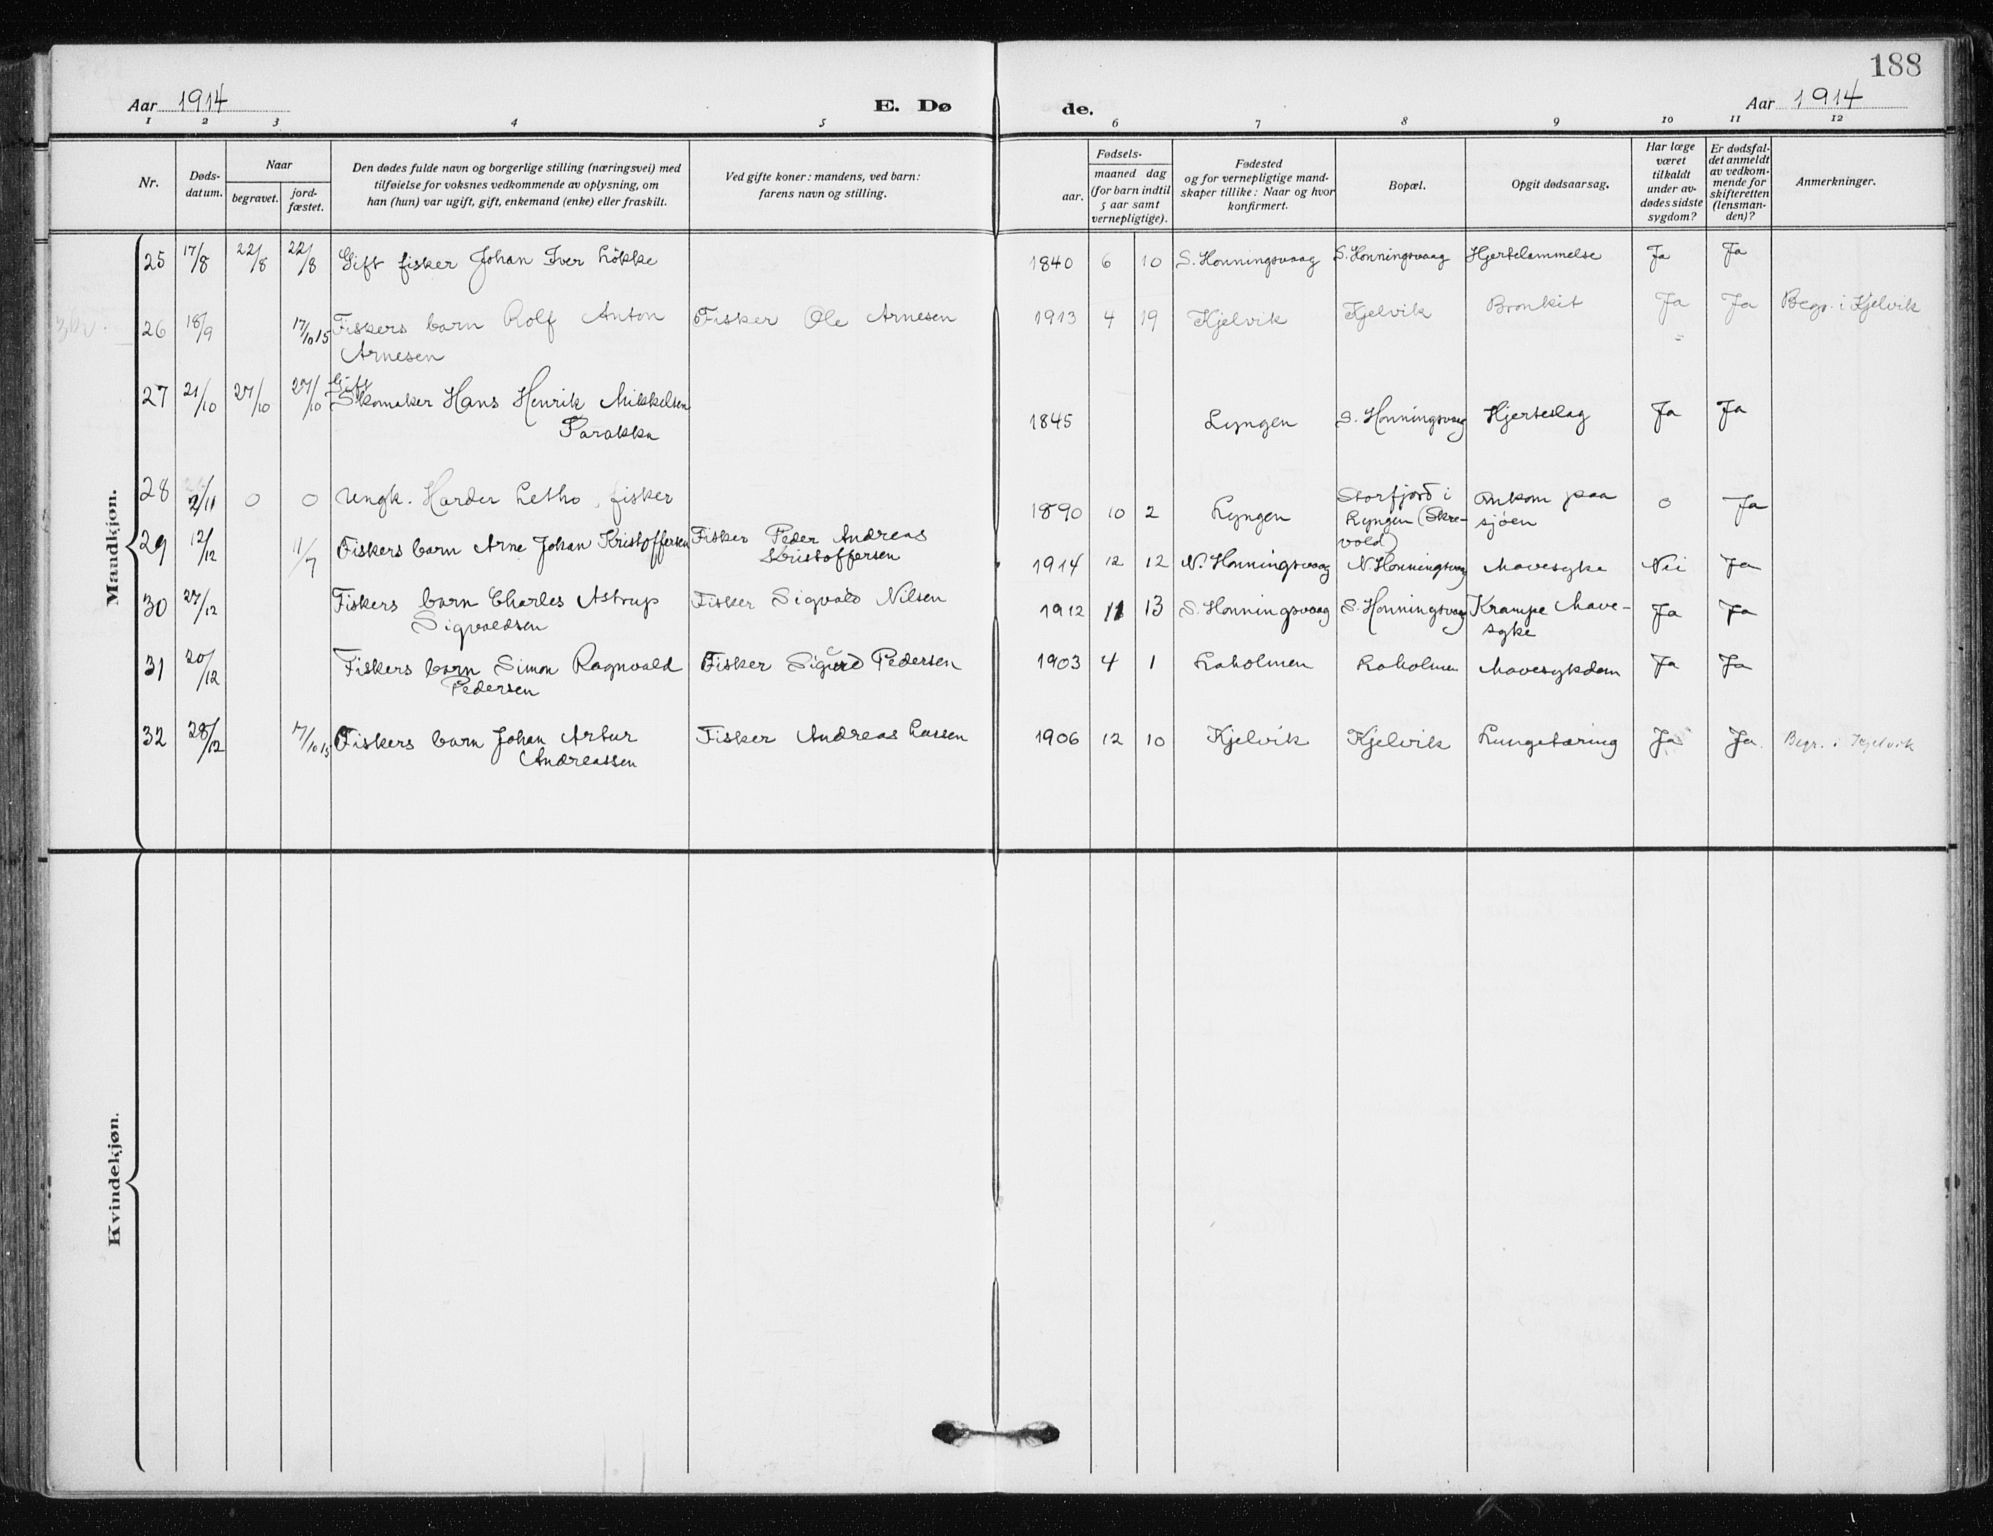 188
Aar 1914
E. Dø
de.
Aar 1914
1 2 3 4 5 6 7 8 9 10 11 12
Nr.
Døds-
datum.
Naar
begravet.
jord-
fæstet.
Den dødes fulde navn og borgerlige stilling (næringsvei) med
tilføielse for voksnes vedkommende av oplysning, om
han (hun) var ugift, gift, enkemand (enke) eller fraskilt.
Ved gifte koner: mandens, ved barn:
farens navn og stilling.
Fødsels-
aar.
maaned dag
(for barn indtil
5 aar samt
vernepligtige).
Fødested
og for vernepligtige mand-
skaper tillike: Naar og hvor
konfirmert.
Bopæl.
Opgit dødsaarsag.
Har læge
været
tilkaldt
under av-
dødes sidste
sygdom?
Er dødsfal-
det anmeldt
av vedkom-
mende for
skifteretten
(lensman-
den)?
Anmerkninger.
Mandkjøn.
25 17/8 22/8 22/8 Gift fisker Johan Iver Løkke 1840 6 10 S. Honningsvaag S. Honningsvaag Hjertelammelse Ja Ja
26 18/9 17/10 15 Fiskers barn Rolf Anton Fisker Ole Arnesen 1913 4 19 Kjelvik Kjelvik Bronkit Ja Ja Begr. i Kjelvik
Arnesen
27 21/10 27/10 27/10 Gift
Skomaker Hans Henrik Mikkelsen 1845 Lyngen S. Honningsvaag Hjerteslag Ja Ja
Parakka
28 2/11 0 0 Ungk. Harder Letho, fisker 1890 10 2 Lyngen Storfjord i Omkom paa 0 Ja
Lyngen (Skre- sjøen
vold)
29 12/12 11/7 Fiskers barn Arne Johan Kristoffersen Fisker Peder Andreas 1914 12 12 N. Honningsvaag N. Honningsvaag Mavesyke Nei Ja
Kristoffersen
30 27/12 Fiskers barn Charles Astrup Fisker Sigvald Nilsen 1912 11 13 S. Honningsvaag S. Honningsvaag Krampe Mave- Ja Ja
Sigvaldsen syke
31 20/12 Fiskers barn Simon Ragnvald Fisker Sigurd Pedersen 1903 4 1 Laholmen Laholmen Mavesykdom Ja Ja
Pedersen
32 28/12 17/10 15 Fiskers barn Johan Artur Fisker Andreas Lassen 1906 12 10 Kjelvik Kjelvik Lungetæring Ja Ja Begr. i Kjelvik
Andreassen
Kvindekjøn.